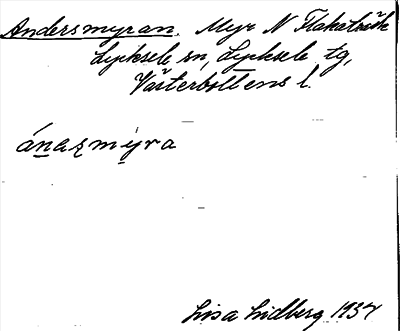 Andersmyran. Myr N Flakaträsk
Lycksele sn, Lycksele tg,
Västerbottens l.
ánazmyra
Lisa Lidberg 1937